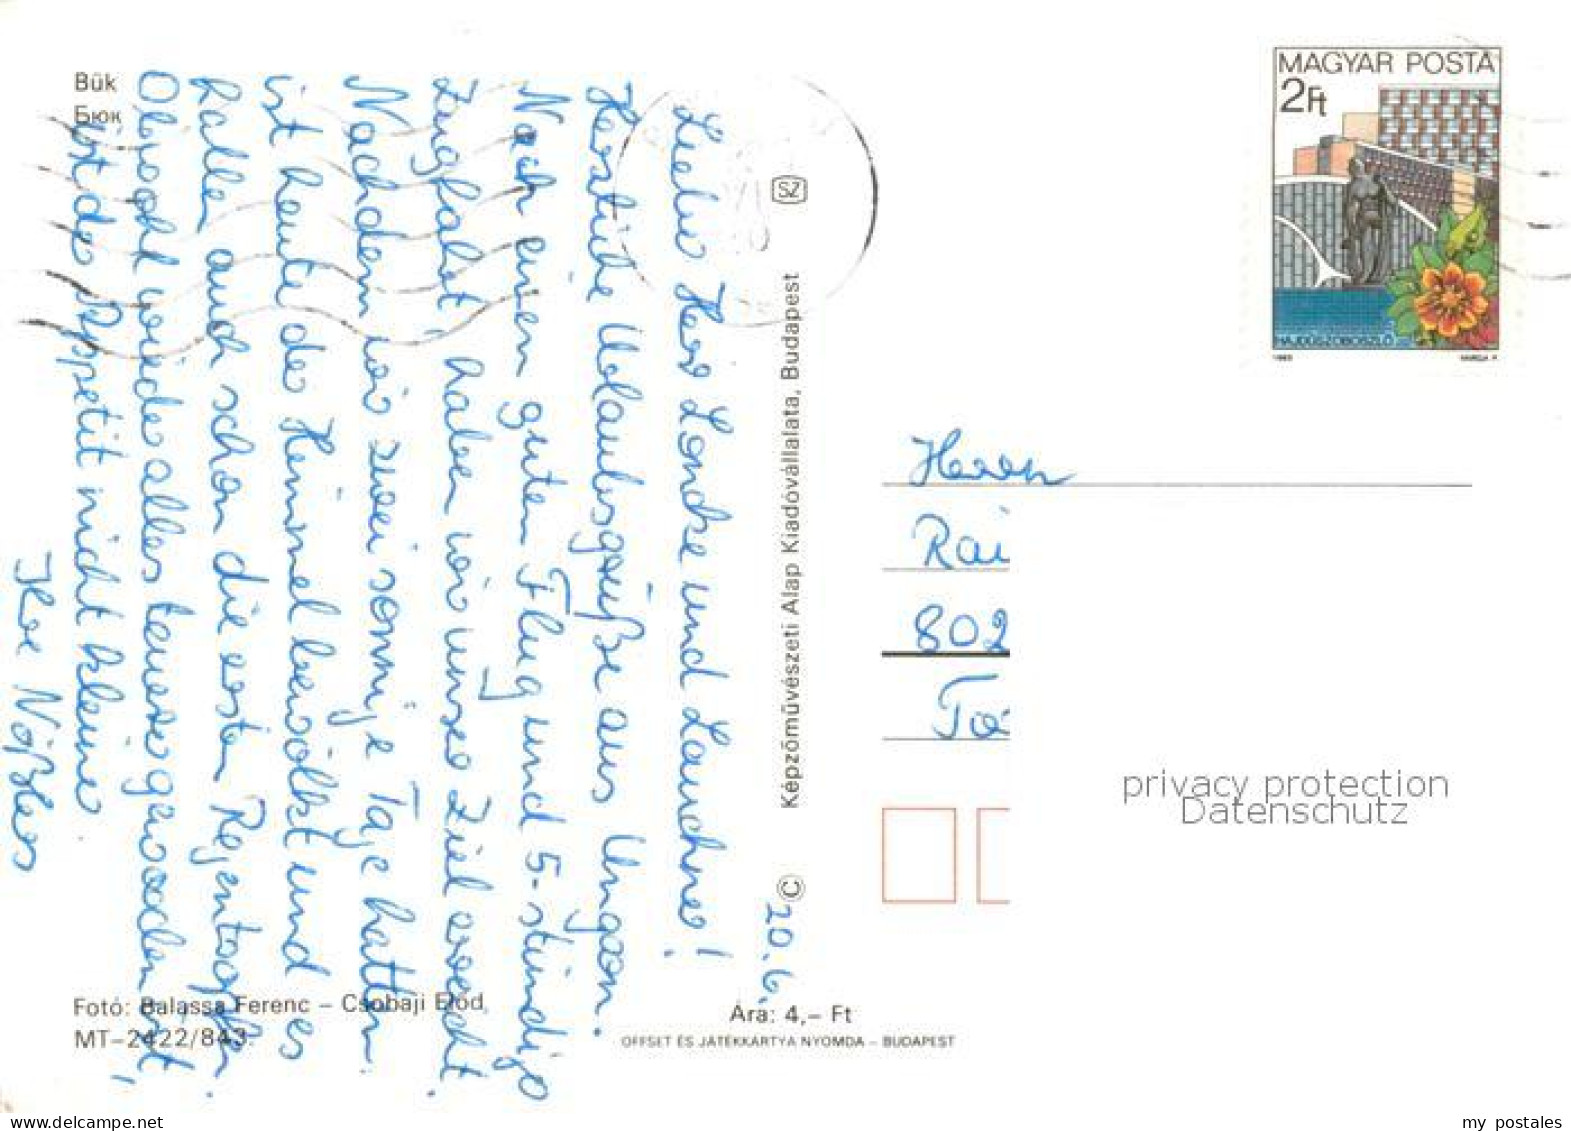 Bük
Бюк
20.6.
Liebe Herr Londke und Lauchner!
Herzliche Urlaubsgrüße aus Ungarn.
Nach einem guten Flug und 5-stündiger
Zugfahrt, haben wir unser Ziel erreicht.
Nachdem wir zwei sonnige Tage hatten
ist heute der Himmel bewölkt und es
fallen auch schon die ersten Regentropfen.
Obwohl wieder alles teurer geworden ist,
ist der Appetit nicht kleiner
Ihre
Fotó: Balassa Ferenc – Csobaji Előd
MT–2422/843.
Képzőművészeti Alap Kiadóvállalata, Budapest
©
SZ
Ára: 4,– Ft
OFFSET ÉS JÁTÉKKÁRTYA NYOMDA – BUDAPEST
MAGYAR POSTA
2Ft
HAJDÚSZOBOSZLÓ
1983
VARGA P.
Herrn
Rai
802
privacy protection
Datenschutz
my postales